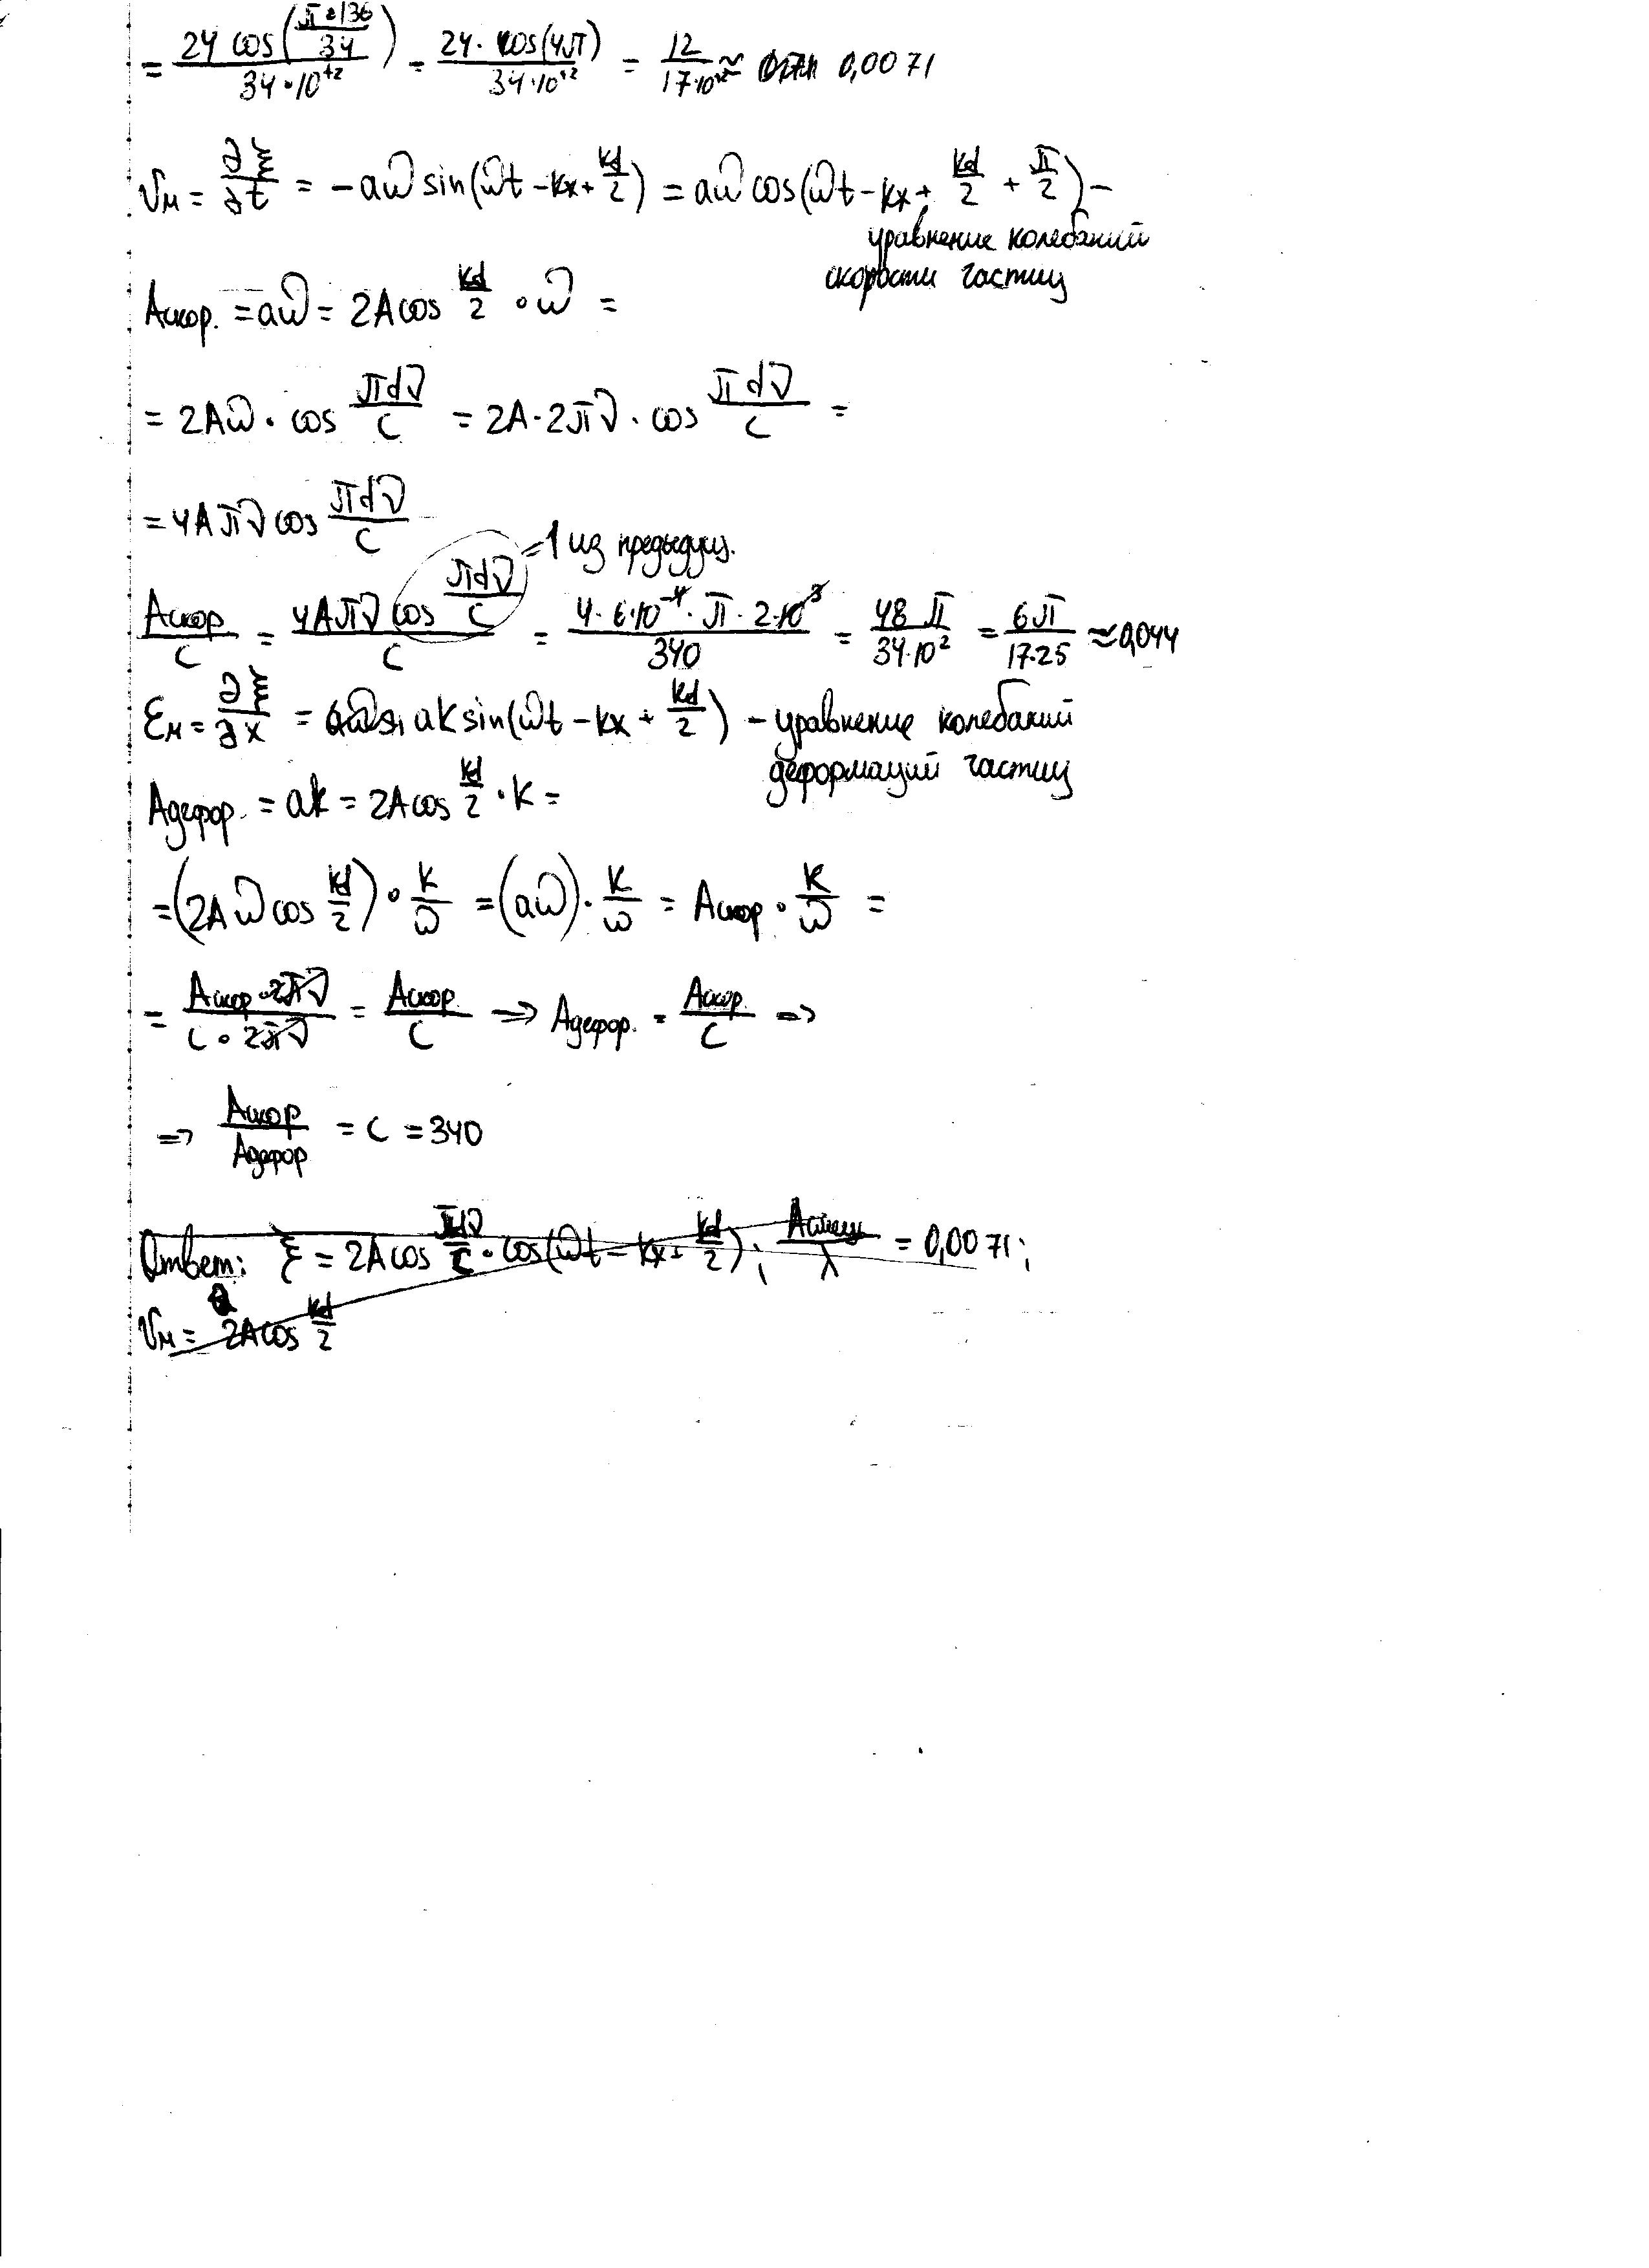 = 24 cos(π·2·136/34) / 34·10⁺² = 24·cos(4π) / 34·10⁺² = 12 / 17·10⁺² ≈ 0,0071
Vм = ∂ξ/∂t = −aω sin(ωt − kx + kd/2) = aω cos(ωt − kx + kd/2 + π/2) −
уравнение колебаний
скорости частиц
Aскор. = aω = 2A cos kd/2 · ω =
= 2Aω · cos πdν/c = 2A·2πν · cos πdν/c =
= 4Aπν cos πdν/c
= 1 из предыдущ.
Aскор/c = 4Aπν cos πdν/c / c = 4·6·10⁻⁴·π·2·10³ / 340 = 48π / 34·10² = 6π / 17·25 ≈ 0,044
εм = ∂ξ/∂x = ak sin(ωt − kx + kd/2) − уравнение колебаний
деформаций частиц
Aдефор. = ak = 2A cos kd/2 · k =
= (2Aω cos kd/2) · k/ω = (aω) · k/ω = Aскор · k/ω =
= Aскор·2πν / c·2πν = Aскор./c => Aдефор. = Aскор./c =>
=> Aскор/Aдефор = c = 340
Ответ: ξ = 2A cos πdν/c · cos(ωt − kx + kd/2); /λ = 0,0071;
Vм = 2A cos kd/2